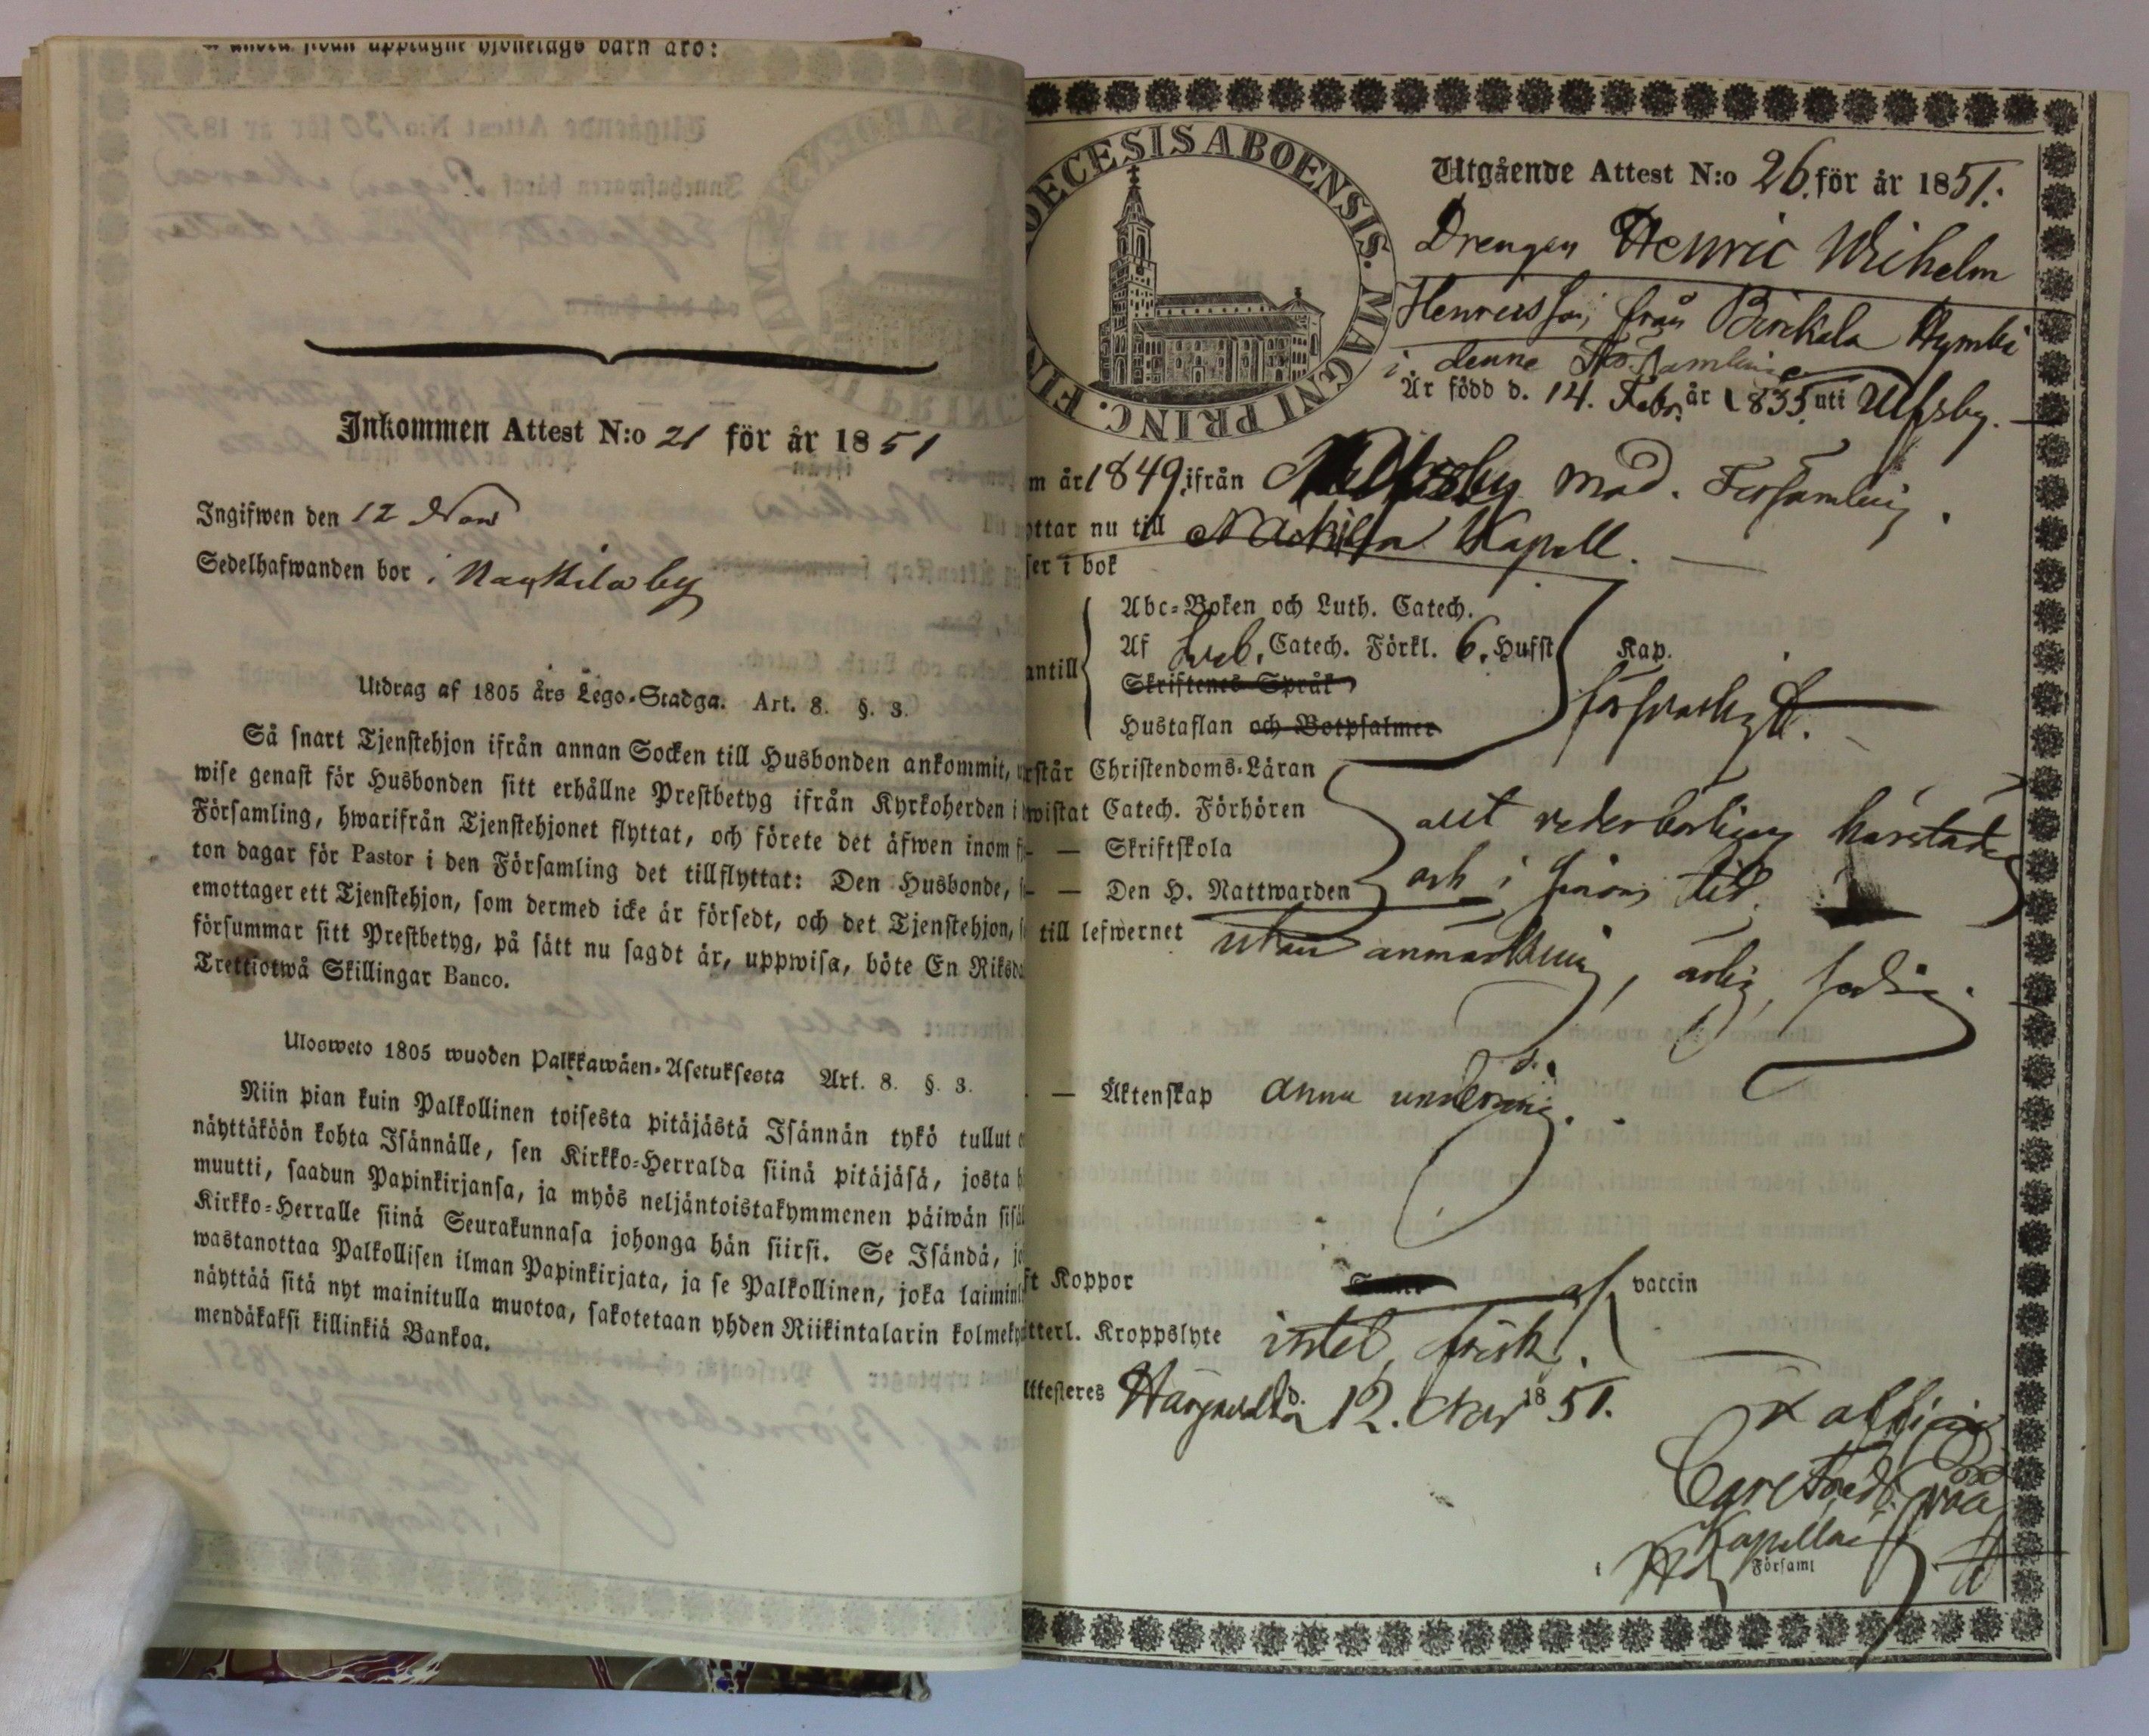 Inkommen Attest N:o 21 för år 1851
Ingifwen den 12 Nov
Sedelhafwanden bor i Nackila by
Utdrag af 1805 års Lego-Stadga. Art. 8. §. 3.
Så snart Tjenstehjon ifrån annan Socken till Husbonden ankommit,
wise genast för Husbonden sitt erhållne Prestbetyg ifrån Kyrkoherden i
Församling, hwarifrån Tjenstehjonet flyttat, och förete det äfwen inom
ton dagar för Pastor i den Församling det tillflyttat: Den Husbonde,
emottager ett Tjenstehjon, som dermed icke är försedt, och det Tjenstehjon,
försummar sitt Prestbetyg, på sätt nu sagdt är, uppwisa, böte En Riksda
Trettiotwå Skillingar Banco.
Ulosweto 1805 wuoden Palkkawäen-Asetuksesta Art. 8. §. 3.
Niin pian kuin Palkollinen toisesta pitäjästä Isännän tykö tullut
näyttäköön kohta Isännälle, sen Kirkko-Herralda siinä pitäjäsä, josta
muutti, saadun Papinkirjansa, ja myös neljäntoistakymmenen päiwän sisä
Kirkko-Herralle siinä Seurakunnasa johonga hän siirsi. Se Isändä,
wastanottaa Palkollisen ilman Papinkirjata, ja se Palkollinen, joka laimin
näyttää sitä nyt mainitulla muotoa, sakotetaan yhden Riikintalarin kolmeky
mendäkaksi killinkiä Bankoa.
DECESIS ABOENSIS. MAGNI PRINC. FIN
Utgående Attest N:o 26. för år 1851.
Drengen Henric Wilhelm
Henricsson, från Birkala
i denne Församling
Är född d. 14. Febr. år 1835 uti Ulfsby.
m år 1849, ifrån mod. Församling.
ottar nu till Nackila Kapell.
ser i bok
Abc-Boken och Luth. Catech.
Af Sveb. Catech. Förkl. 6. Hufst Kap.
antill
Skriftenes Språk
Hustaflan och Botpsalmer
försvarligt.
rstår Christendoms-Läran
wistat Catech. Förhören
— Skriftskola
— Den H. Nattwarden
allt vederbörligen
och i sinom tid.
till lefwernet utan anmärkning, ärlig,
— Äktenskap
ft Koppor af vaccin
tterl. Kroppslyte intet, frisk.
ttesteres d. 12. Nov 1851.
Carl Fredr.
Kapellan
i Församl